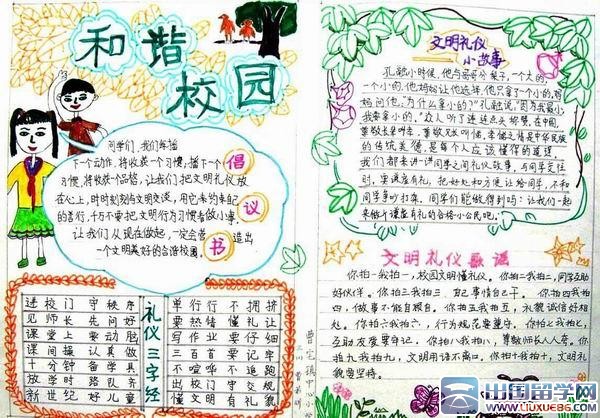 和谐
校园
同学们，我们每播
下一个动作，将收获一个习惯；播下一个
习惯，将收获一个品格，让我们把文明礼仪放
在心上，时时刻刻与文明交谈，用它来约束己
的言行，千万不要把文明行为习惯看做小事。
让我们从现在做起，一定会营造出
一个文明美好的合谐校园。
倡
议
书
礼仪三字经
进校门 守秩序
见师长 先问好
课堂上 要动脑
课间操 认真做
十分钟 备学具
放学时 路队齐
新世纪 好儿童
单行行 不拥挤
要热情 懂礼让
写作业 要仔细
三百首 要记牢
不喧哗 不追跑
出校门 守交规
懂文明 有礼貌
文明礼仪
小故事
孔融小时候，他与哥哥分梨子，一个大的
一个小的，他妈妈让他选择，他只拿了一个小的，妈
妈问他，"为什么拿小的？"孔融说，"因为我最小，
我要拿小的。"众人听了连连点头称赞，在中国，
尊敬长辈
的传统美德，是每个人应该懂得的道理，
我们都来讲一讲同学之间礼仪故事，与同学交往
时，要谦虚有礼，把好处和方便让给同学，不和
同学争吵打架，同学们能做得到吗？让我们一起
来做个谦虚有礼的合格小公民吧。
文明礼仪歌谣
你拍一我拍一，校园文明懂礼仪。你拍二我拍二，同学互助
好伙伴。你拍三我拍三，自己事情自己干。你拍四我拍
四，做事不能自顾自。你拍五我拍五，礼貌诚信好相
处。你拍六我拍六，行为规范要遵守。你拍七我拍七，
互助友爱要牢记。你拍八我拍八，尊敬师长人人夸。你
拍九我拍九，文明用语不离口。你拍十我拍十，文明礼
貌要坚持。
出国留学网
www.liuxue86.com